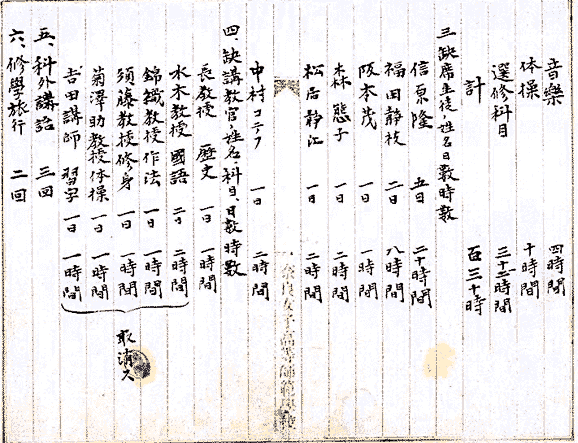 音樂 四時間
体操 十時間
選修科目 三十二時間
計 百三十時
三、缺席生徒ノ姓名日數時數
信原隆 五日 二十時間
福田静枝 二日 八時間
阪本茂 一日 一時間
森 態子 一日 二時間
松居静江 一日 二時間
奈良女子高等師範學校
中村コテフ 一日 二時間
四、缺講教官ノ姓名、科目、日數時數
長教授 歴文 一日 一時間
水木教授 國語 二日 二時間
錦織教授 作法 一日 一時間
須藤教授 修身 一日 一時間
菊澤助教授 体操 一日 一時間
吉田講師 習字 一日 一時間
取消ス
五、科外講話 三回
六、修學旅行 二回